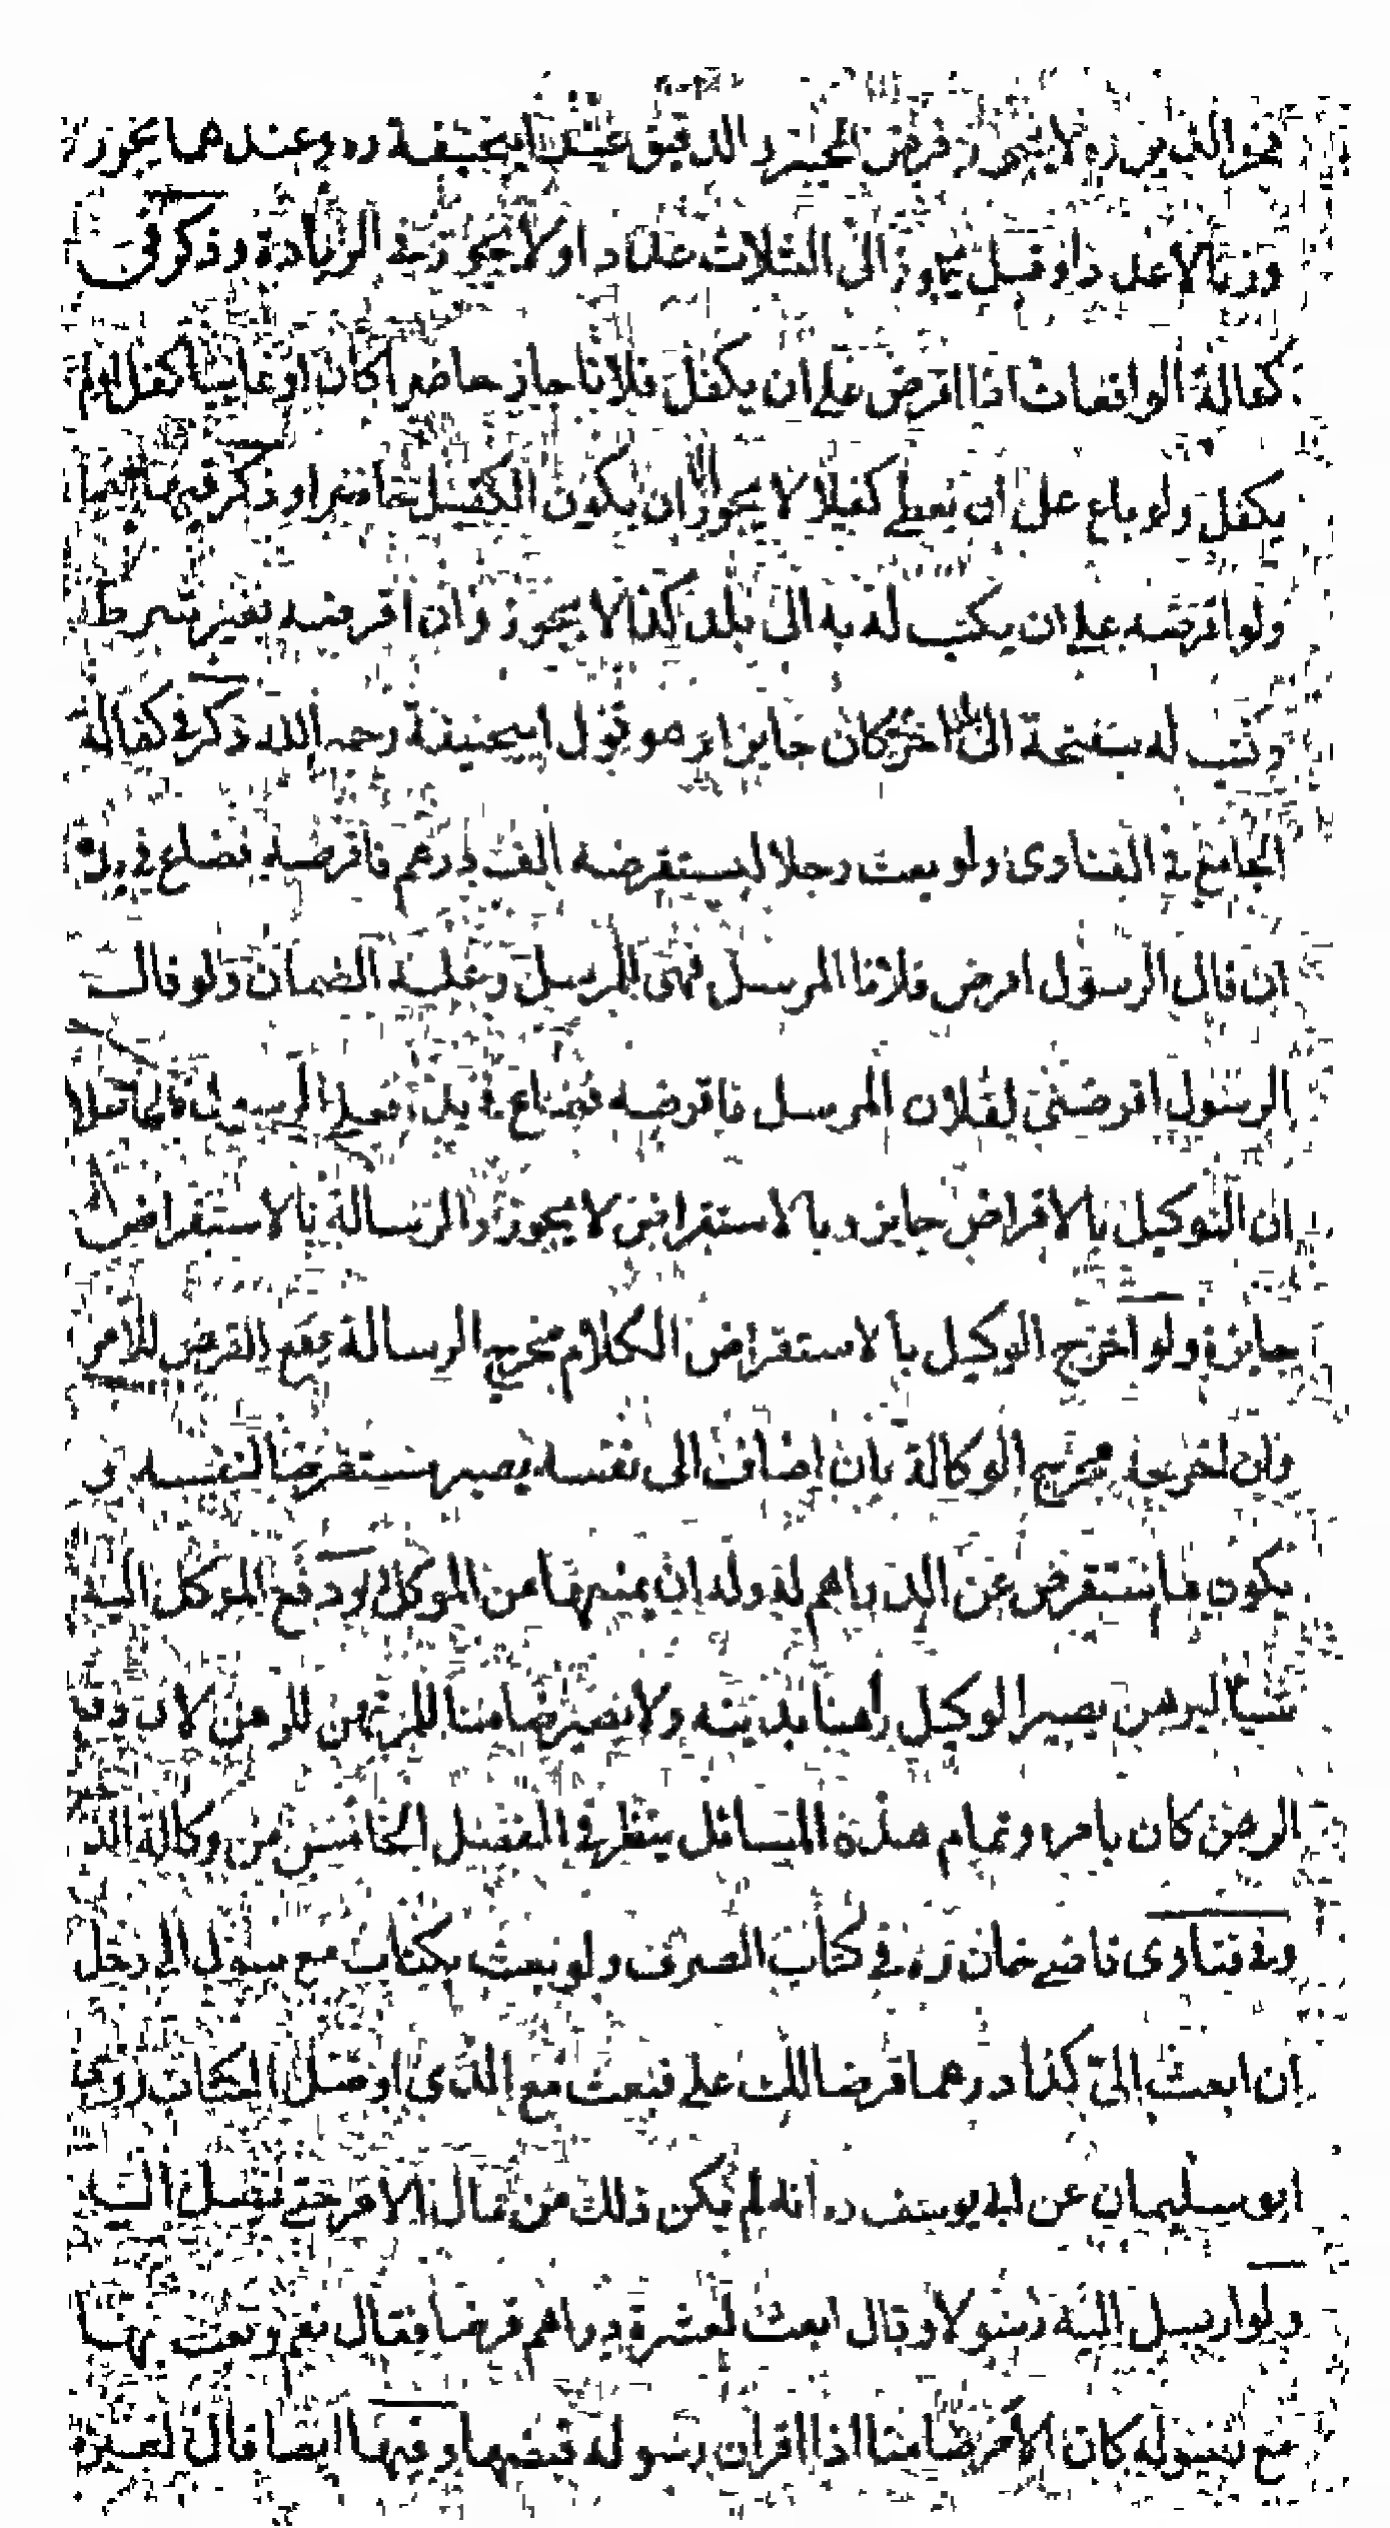 فخر الدين ره لا يجوز قرض الخبز والدقيق عند ابيحنيفة ره وعندهما يجوز
وزنا لا عددا وقيل يجوز الى الثلاث عددا ولا يجوز في الزيادة وذكر في
كفالة الواقعات اذا اقرض على ان يكفل فلانا جاز حاضرا كان او غائبا كفل اولم
يكفل ولو باع على ان يعطى كفيلا لا يجوز الا ان يكون الكفيل حاضرا وذكر فيها ايضا
ولو اقرضه على ان يكتب له به الى بلد كذا لا يجوز وان اقرضه بغير شرط
وكتب له سفتجة الى اخر كان جايزا وهو قول ابيحنيفة رحمه الله ذكر في كفالة
الجامع في الفتاوى ولو بعث رجلا ليستقرضه الف درهم فاقرضه فضاع في يده
ان قال الرسول اقرض فلانا المرسل فهى للمرسل وعليه الضمان ولو قال
الرسول اقرضنى لفلان المرسل فاقرضه فضاع في يده فعلى الرسول فالحاصل
ان التوكيل بالاقراض جايز وبالاستقراض لا يجوز والرسالة بالاستقراض
جايزة ولو اخرج الوكيل بالاستقراض الكلام مخرج الرسالة يقع القرض للامر
وان اخرجه مخرج الوكالة بان اضاف الى نفسه يصير مستقرضا لنفسه و
يكون ما استقرض من الدراهم له وله ان يمنعها من الموكل ولو دفع الموكل اليه
شيئا ليرهن يصير الوكيل راهنا بدينه ولا يصير ضامنا للمرتهن للرهن لان دفع
الرهن كان بامره وتمام هذه المسائل ينظر في الفصل الخامس من وكالة الذ
وفي فتاوى قاضى خان ره في كتاب الصرف ولو بعث بكتاب مع رسول الى رجل
ان ابعث الى كذا درهما قرضا لك على فبعث مع الذى اوصل الكتاب روى
ابو سليمان عن ابي يوسف ره انه لم يكن ذلك من مال الامر حتى يصل اليه
ولو ارسل اليه رسولا وقال ابعث لعشرة دراهم قرضا فقال نعم وبعث بها
مع رسوله كان الامر ضامنا اذا اقر ان رسوله قبضها وفيها ايضا قال لعشرة